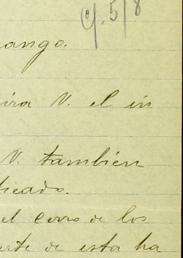 y. 5/8
ango.
ira V. el in
V. tambien
ficado.
el cerro de los
rte de esta ha